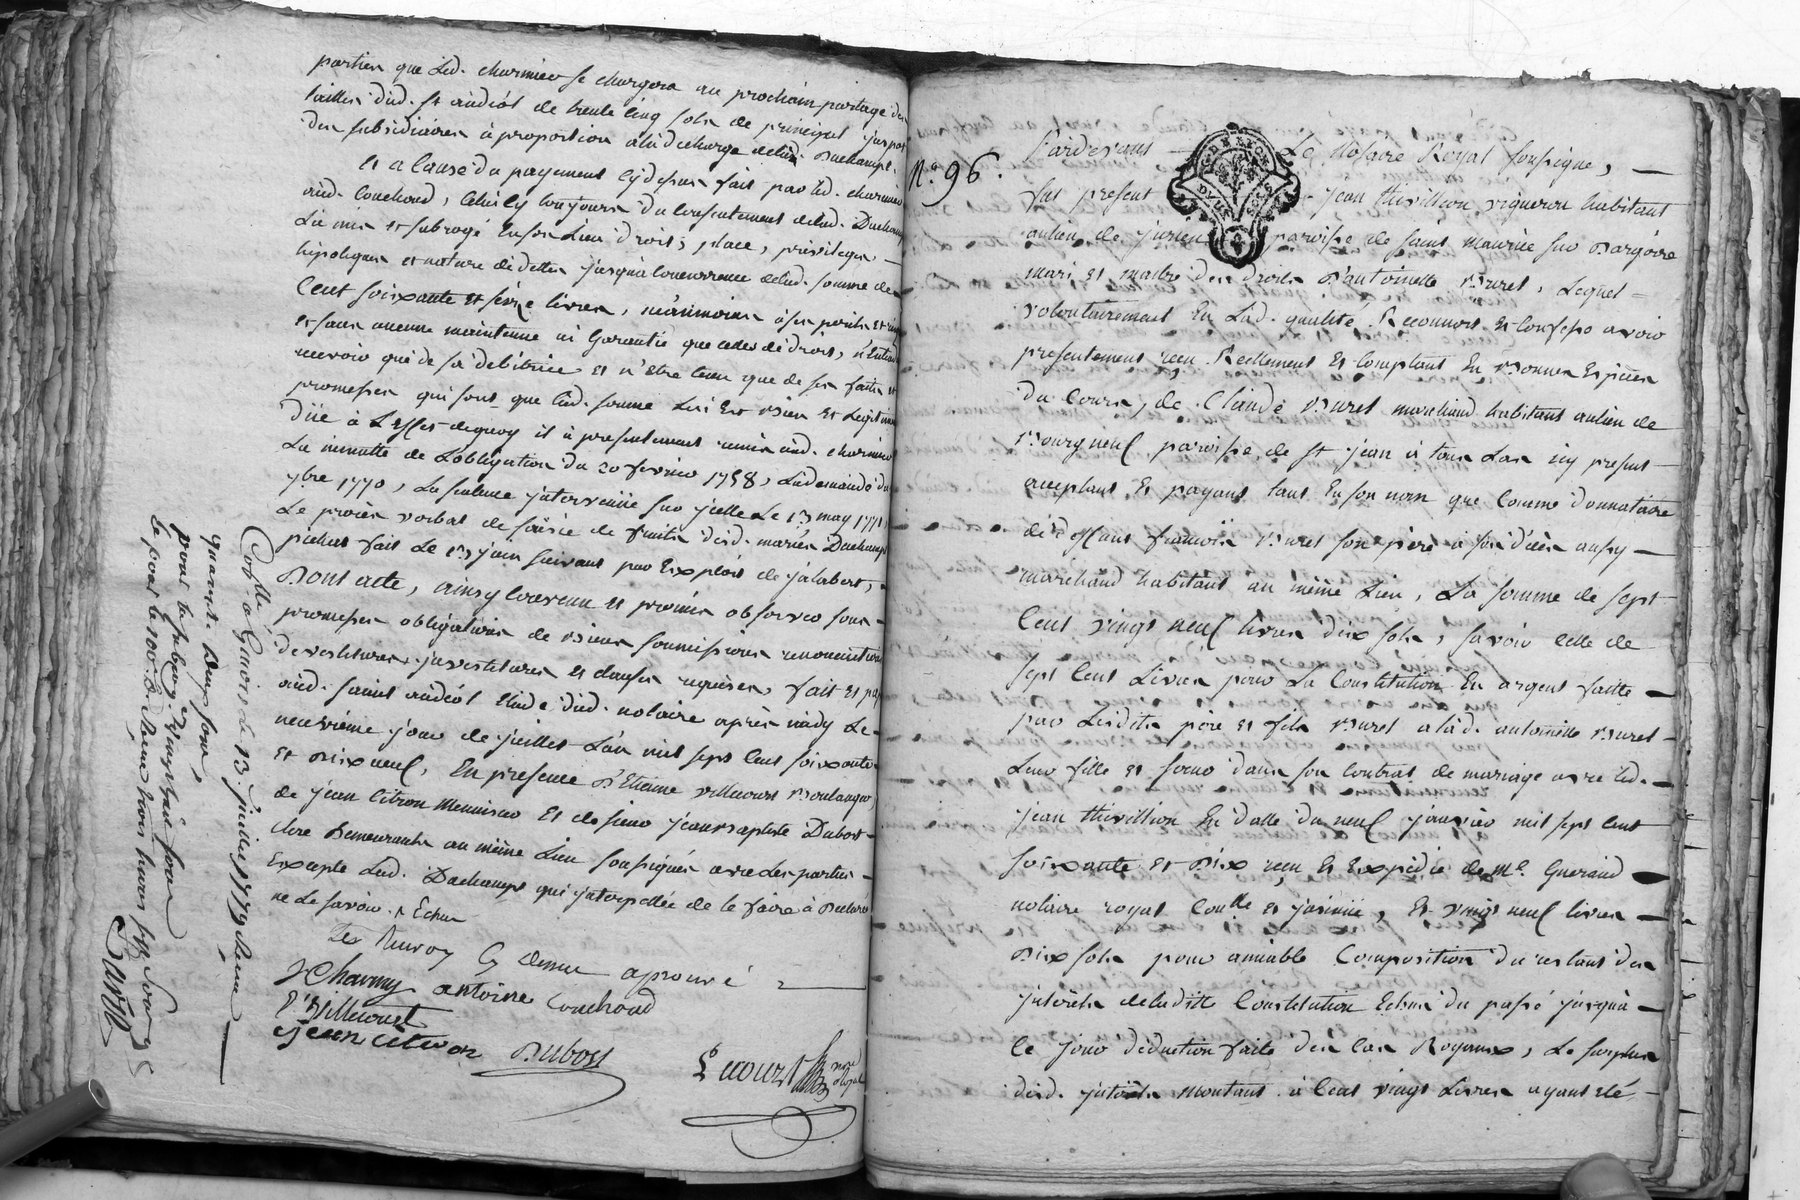 parties que led. charmier se chargera au prochain partage des
tailles dud. st andéol de trente cinq sols de principal
des subsidiaires à proportion à la décharge delad. Duchamps.
Et a cause du payement cy dessus fait par led. charmier
aud. Couchoud, celui cy toujours du consentement delad. Duchamp
La mis et subrogé en son Lieu, droits, place, privileges
hipoteques et nature de dettes jusqu'à concurrence delad. somme de
Cent soixante et seize livres, néanmoins à ses perils et
et sans aucune maintenue ni Garantie que celle de droit, n'entend
recevoir que de sa débitrice et n'être tenu que de ses faits et
promesses qui sont que lad. somme Lui est bien et Legitimement
düe à L'effet dequoy il à presentement remis aud. charmier
La minutte de L'obligation du 20 fevrier 1758, La demande du
ybre 1770, La sentence intervenüe sur icelle Le 13 may 1771
Le procès verbal de saisie de fruits desd. mariés Duchamps
fait Le juin suivant par Exploit de jalabert,
Dont acte, ainsy convenu et promis observer sous
promesses obligations de biens soumissions renonciations
devestitures, investitures et clauses requises, fait et passé
aud. saint andéol Etude dud. notaire après midy Le
neuvième jour de juillet L'an mil sept Cent soixante
et Dix neuf, En presence D'Etienne villecourt Boulanger
de jean Citron Menuisier Et de sieur jean baptiste Dubost
clerc Demeurants au même Lieu soussignés avec Les parties
Excepté Lad. Duchamps qui interpellée de le faire à Declaré
ne Le savoir. Echue
Les Renvoy Cy dessus aprouvé
J Charmy antoine Couchoud
E Villecourt
jean citron Dubost
Lecourt nore Royal
Conllé. à Givors le 13 juillet 1779 Reçu
quarante deux sous,
pour le
N.° 96.
Pardevant Le Notaire Royal soussigné,
fut present jean thivillion vigneron habitant
au lieu de paroisse de saint maurice sur Dargoire
mari et maitre des droits D'antoinette Buret, Lequel
volontairement En Lad. qualité Reconnoit et Confesse avoir
presentement reçu Reellement et Comptant En Bonnes Espèces
Du Cours, de Claude Buret marchand habitant au lieu de
Bourgneuf paroisse de st jean à tous Las icy present
acceptant Et payant tant En son nom que Comme Donnataire
de deffunt françois Buret son père a son décès aussy
marchand habitant au même Lieu, La somme de sept
Cent vingt neuf livres dix sols, savoir celle de
sept Cent Livres pour La Constitution En argent faitte
par Lesdits père et fils Buret a lad. antoinette Buret
Leur fille et soeur dans son Contrat de mariage avec led.
jean thivillion En datte du neuf janvier mil sept Cent
soixante et Dix reçu Et Expedié de Me. Guerand
notaire royal Conllé et insinüé, Et vingt neuf livres
Dix sols pour amiable Composition du restant des
intérêts de ladite Constitution Echus du passé jusqu'à
Ce jour déduction faite des Cas Royaux, Le surplus
desd. intérêts montant à Cent vingt Livres ayant été